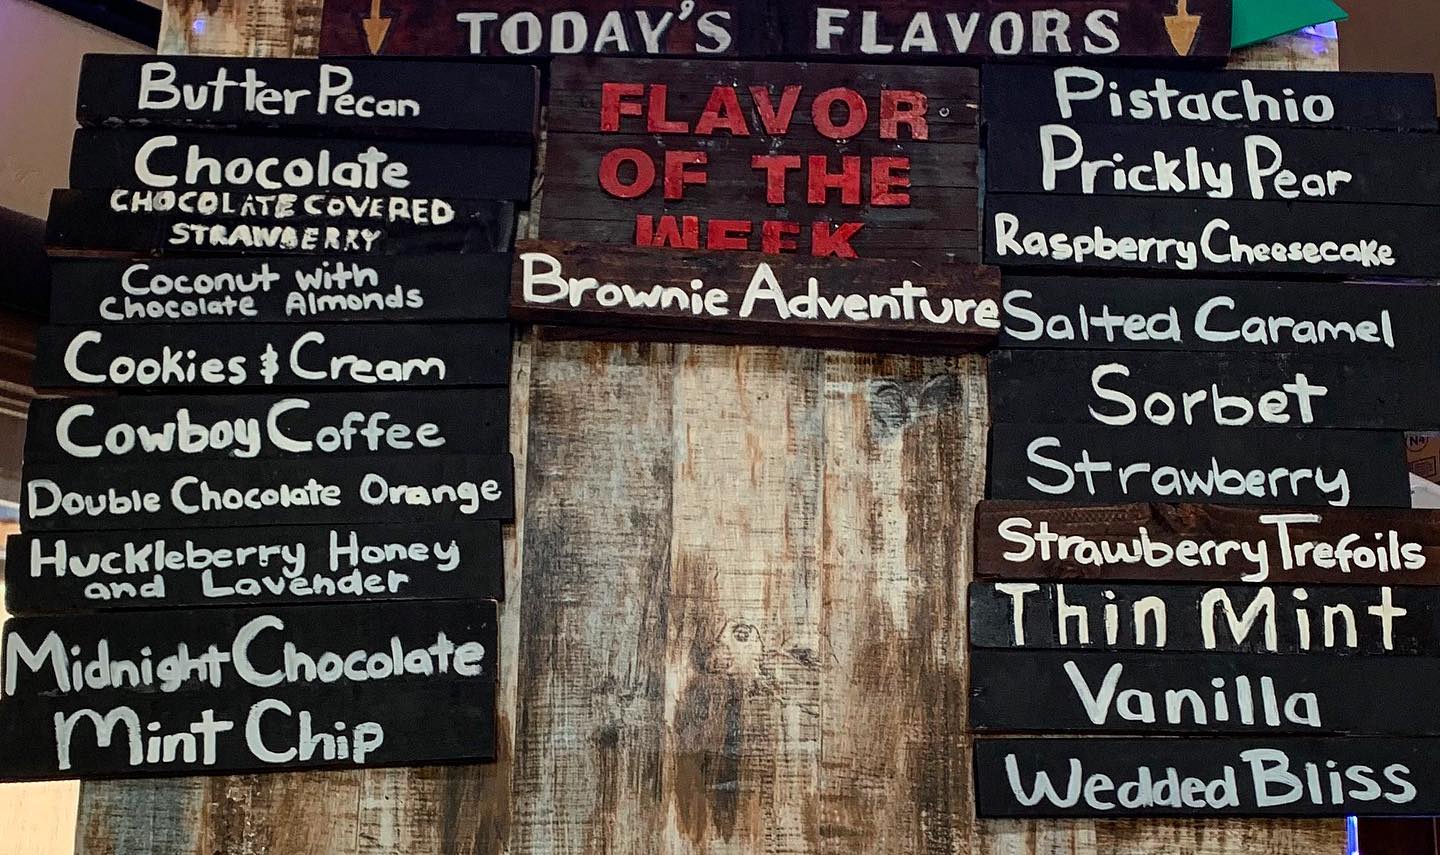 TODAY'S FLAVORS
Butter Pecan
Chocolate
CHOCOLATE COVERED
STRAWBERRY
Coconut with
Chocolate Almonds
Cookies & Cream
Cowboy Coffee
Double Chocolate Orange
Huckleberry Honey
and Lavender
Midnight Chocolate
Mint Chip
FLAVOR
OF THE
WEEK
Brownie Adventure
Pistachio
Prickly Pear
Raspberry Cheesecake
Salted Caramel
Sorbet
Strawberry
Strawberry Trefoils
Thin Mint
Vanilla
Wedded Bliss